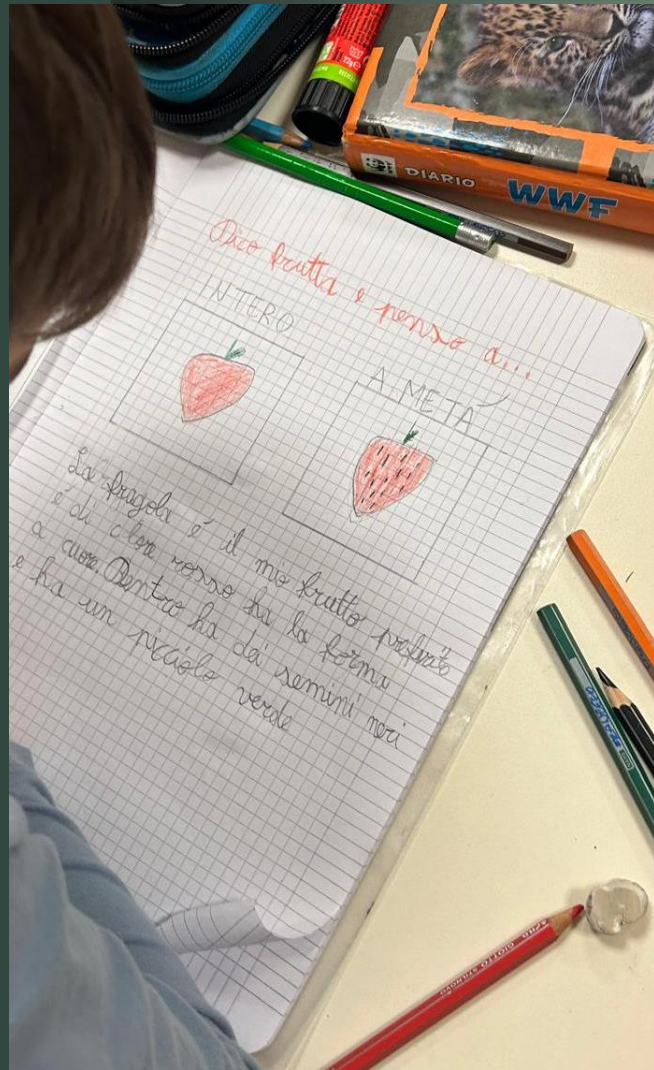 DIARIO WWF
Dico frutta e penso a...
INTERO
A METÀ
La fragola é il mio frutto preferito
é di colore rosso ha la forma
a cuore. Dentro ha dei semini neri
e ha un picciolo verde
GIOTTO STILNOVO